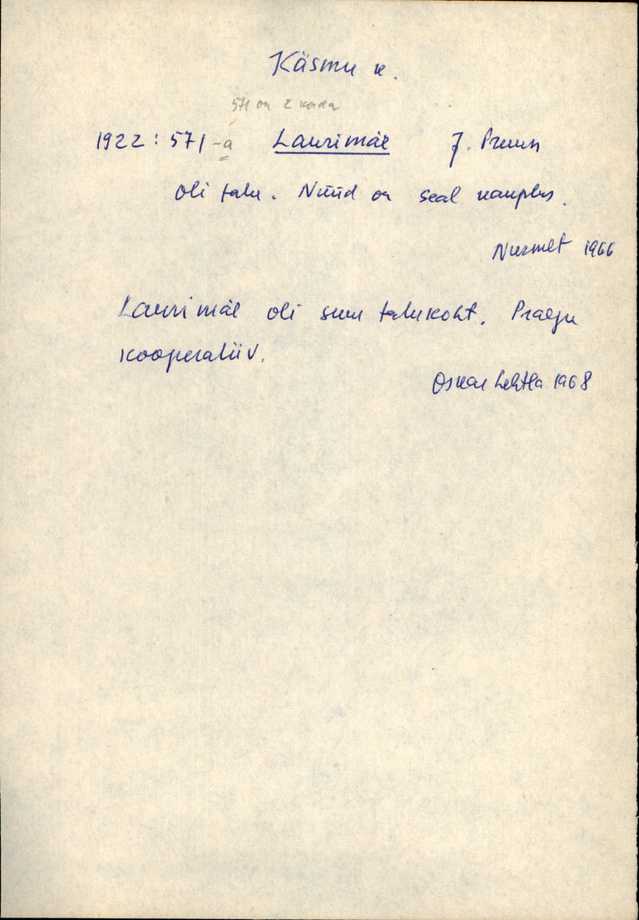 Käsmu k.
571 on 2 korda
1922: 571-a Laurimäe J. Pruun
oli talu. Nüüd on seal kauplus.
Nurmet 1966
Laurimäe oli suur talukoht. Praegu
kooperatiiv.
Oskar Lehtla 1968